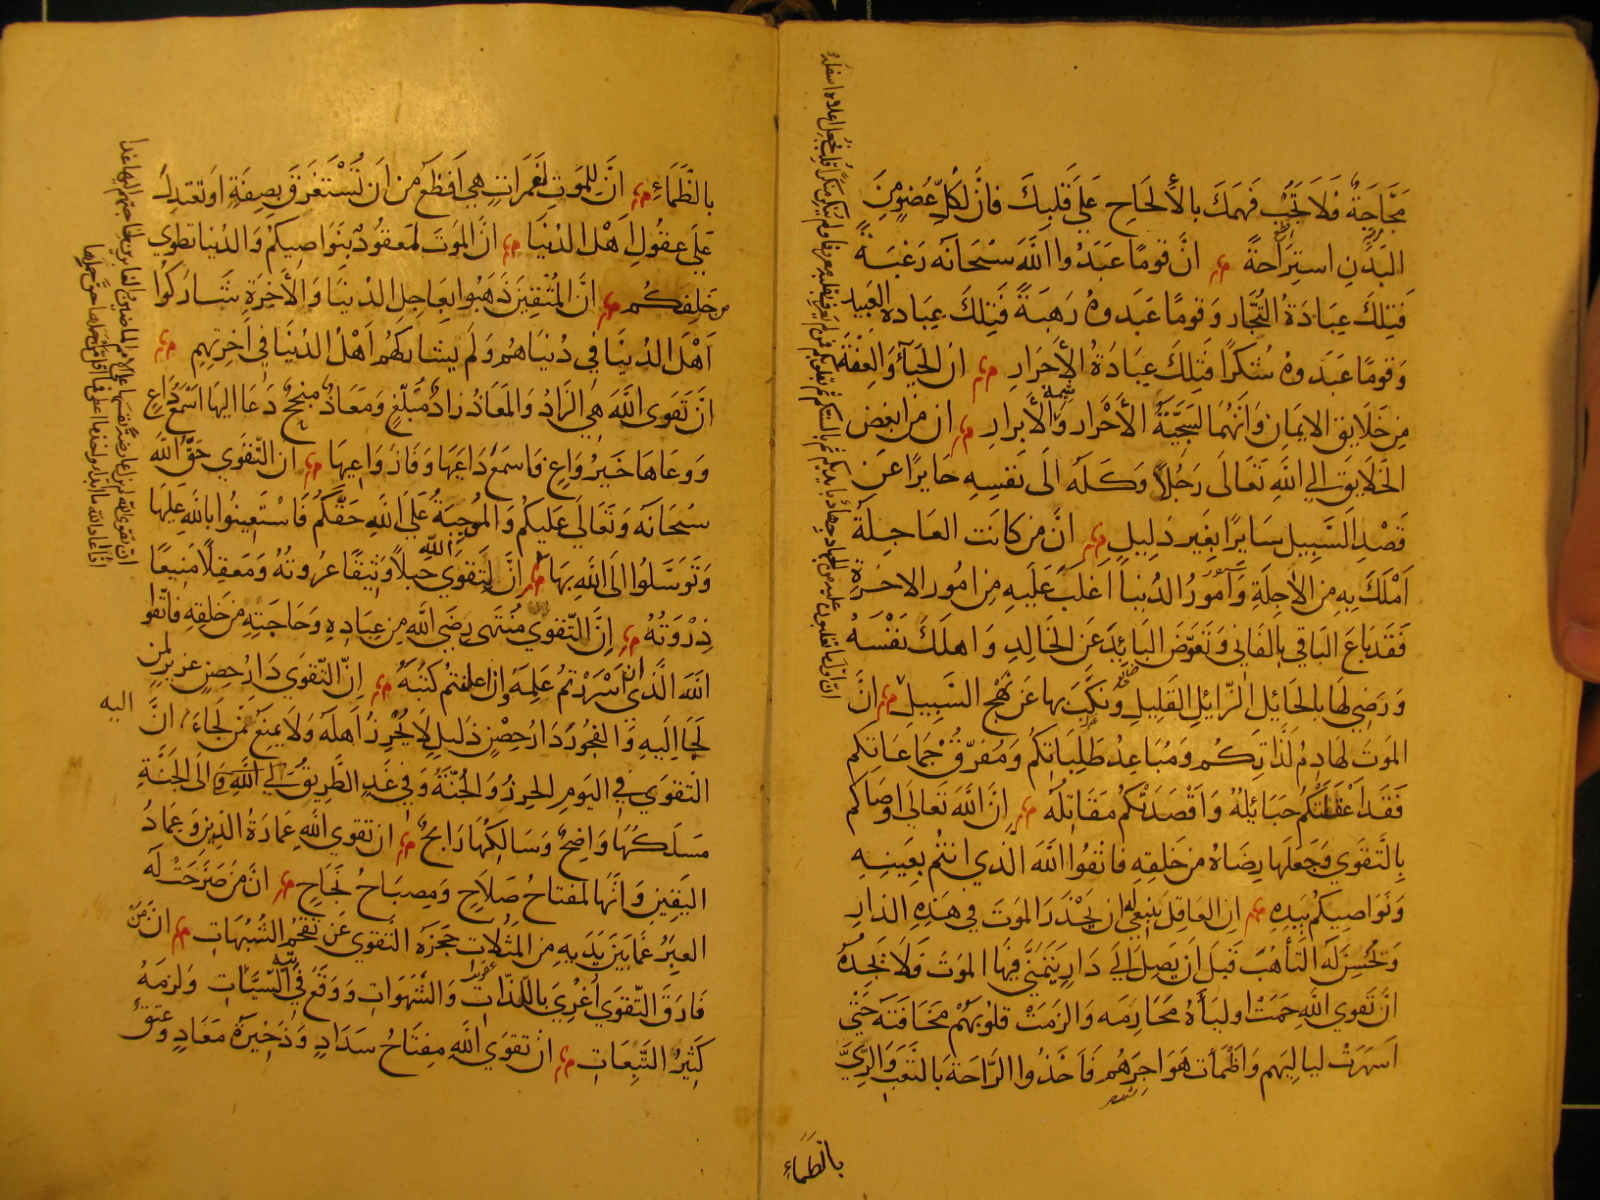 مَجَّاجَةٌ فَلَا تُجِبْ فَهمَكَ بالأَلحَاحِ عَلَى قَلبِكَ فَانَّ لكُلِّ عُضوٍ مِنَ
البَدَنِ استِرَاحَةً انَّ قومًا عَبَدُوا اللَّهَ سُبْحَانَه رَغبَةً
فَتِلكَ عِبَادَةُ التُّجَّارِ وَقومًا عَبَدوهُ رَهبَةً فَتِلكَ عِبَادة العَبِيدِ
وَقومًا عَبَدوهُ شُكرًا فَتِلكَ عِبَادَةُ الأَحرَارِ ان الحَيَآءَ وَالعِفَّةَ
مِن خَلَايقِ الايمَانِ وَانَّهُمَا لَسَجِيَّةُ الأَحْرَارِ وَشيمة الأَبرارِ ان مِن ابغضِ
الخَلَايقِ الى اللَّهِ تَعَالَى رَجُلاً وَكَلَه الَى نَفسِهِ حَايرًا عَن
قَصْدِ السَّبِيلِ سَايرًا بِغَيرِ دَلِيلٍ انَّ مَن كانَت العَاجِلَةُ
اَمْلَكَ بِهِ مِن الآجِلَةِ وَاُمُورُ الدُنيا اغلَبَ عَلَيهِ مِن امُور الاخرَةِ
فَقَد بَاعَ البَاقي بِالفَانِي وَتَعَوَّضَ البَائِدَ عَن الخَالِدِ وَاهلَكَ نَفْسَهُ
وَرَضِيَ لهَا بالحَائِلِ الزَّائِلِ القَلِيلِ وَنكَّبَ بِها عَن نَهْجِ السَّبِيلِ انَّ
الموَتَ لهَادِمُ لَذَّاتِكُم وَمُبَاعِدُ طَلِبَاتِكُم وَمُفَرِّقُ جَمَاعَاتِكم
فَقَد اَعْقَلَتْكُم حَبَائِلُهُ وَاَقْصَدَتْكُم مَقَاتِلُهُ اِنَّ اللَّهَ تَعَالَى اَوصَاكم
بِالتَّقوَى وَجَعَلَها رِضَاهُ مِن خَلقِهِ فاتَّقُوا اللَّهَ الَّذي انتُم بِعَينِهِ
وَنَوَاصِيكُم بِيَدِهِ اِن العَاقِلَ ينبغى له ان يَحْذَرَ الموَتَ في هَذِهِ الدَارِ
وَيُحْسِنَ لَه التَّأهُّبَ قَبلَ ان يَصِلَ الَى دَارٍ يَتَمَنَّى فِيهَا الموَتَ فَلَا يَجِدُهُ
انَّ تَقوى اللَّهِ حَمَتْ اوليَاءَهُ مَحَارِمَه وَالزَمَتْ قلُوبَهُمْ مَخَافَتَه حَتَّى
اَسهَرَتْ ليَالِيَهم وَاَظْمَأَت هَوَاجِرَهُم فَاَخَذُوا الرَّاحَةَ بالتَّعَبِ وَالرِّيَّ
بالظَمَاءِ
بالظَّمَاءِ انَّ للمَوتِ لَغَمَرَاتٍ هِي اَفظَعُ مِن اَن تُسْتَغرَقَ بِصِفَةٍ اوتَعتَدِلَ
عَلَى عقُولِ اَهْلِ الدُنيَا انَّ الموَتَ لَمعَقودٌ بِنَوَاصِيكُم وَالدُنيا تطوى
مِن خَلفِكُم انَّ المتَّقِينَ ذَهَبُوا بِعَاجِلِ الدُنيَا وَالآخِرَةِ شَارَكُوا
اَهْلَ الدُنيَا فِي دُنيَاهُم وَلَم يُشَارِكهُم اَهْلُ الدُنيَا في آخِرَتِهِم
انَّ تَقوَى اللَّهِ هِي الزَادُ وَالمَعَاذُ زادٌ مُبَلِّغٌ وَمَعَاذٌ مُنجِحٌ دَعَا اليهَا اَسْمَعُ دَاعٍ
وَوَعَاهَا خَيرُ وَاعٍ فَاَسمَعَ دَاعِيَهَا وَفَازَ وَاعِيهَا ان التَّقوَى حَقُّ اللَّهِ
سُبْحَانَه وَتَعَالَى عَليكُم وَالمُوجِبَةُ عَلَى اللَّهِ حَقَّكُم فَاسْتَعِينُوا باللَّهِ عَلَيهَا
وَتَوَسَّلُوا الَى اللَّهِ بِهَا انَّ لِتَقوَى اللَّه حَبلاً وَثِيقًا عُروَتُهُ وَمَعقِلاً مَنِيعًا
ذِرْوَتُهُ اِنَّ التَّقوَى مُنتَهَى رِضَى اللَّهِ مِن عِبَادِهِ وَحَاجَتِهِ مِن خَلقِهِ فَاتَّقُوا
اللَّهَ الَّذي ان اَسْرَرْتُم عَلِمَهُ وَان اعلَنتُم كَتَبَهُ اِنَّ التَّقوَى دَارُ حِصنٍ عزيزٍ لمن
لَجَا الَيهِ وَالفجُورَ دَارُ حِصْنٍ ذَليلٍ لا يُحْرِزُ اَهلَهُ وَلَا يمنَعُ مَن لَجَاءَ انَّ
اليه
التَّقوَى فِي اليَومِ الحِرزُ وَالجُنَّةُ وَفي غَدٍ الطَّرِيقُ الى اللَّهِ وَالَى الجَنَّةِ
مَسلَكُهَا وَاضِحٌ وَسَالِكُهَا رَابحٌ انَّ تقوى اللَّهِ عِمَادَةُ الدِينِ وَعِمَادُ
اليَقِينِ وَانَّهَا لَمفتَاحُ صَلَاحٍ وَمِصبَاحُ نَجَاحٍ انَّ مَن صَرَّحَتْ لَه
العِبَرُ عَمَّا بَينَ يَدَيهِ مِن المَثُلَاتِ حَجَزَهُ التَّقوَى عَن تَقَحُّمِ الشُّبُهَاتِ انَّ مَن
فَارَقَ التَّقوَى اُغرِيَ بِاللَّذَّاتِ وَالشَّهَوَاتِ وَوَقَعَ فِي تيه السَّيِّئَاتِ وَلزمَهُ
كَثِيرُ التَّبِعَاتِ انَّ تَقوَى اللَّهِ مِفتَاحُ سَدَادٍ وَذَخِيرَةُ مَعَادٍ وَعِتقٌ